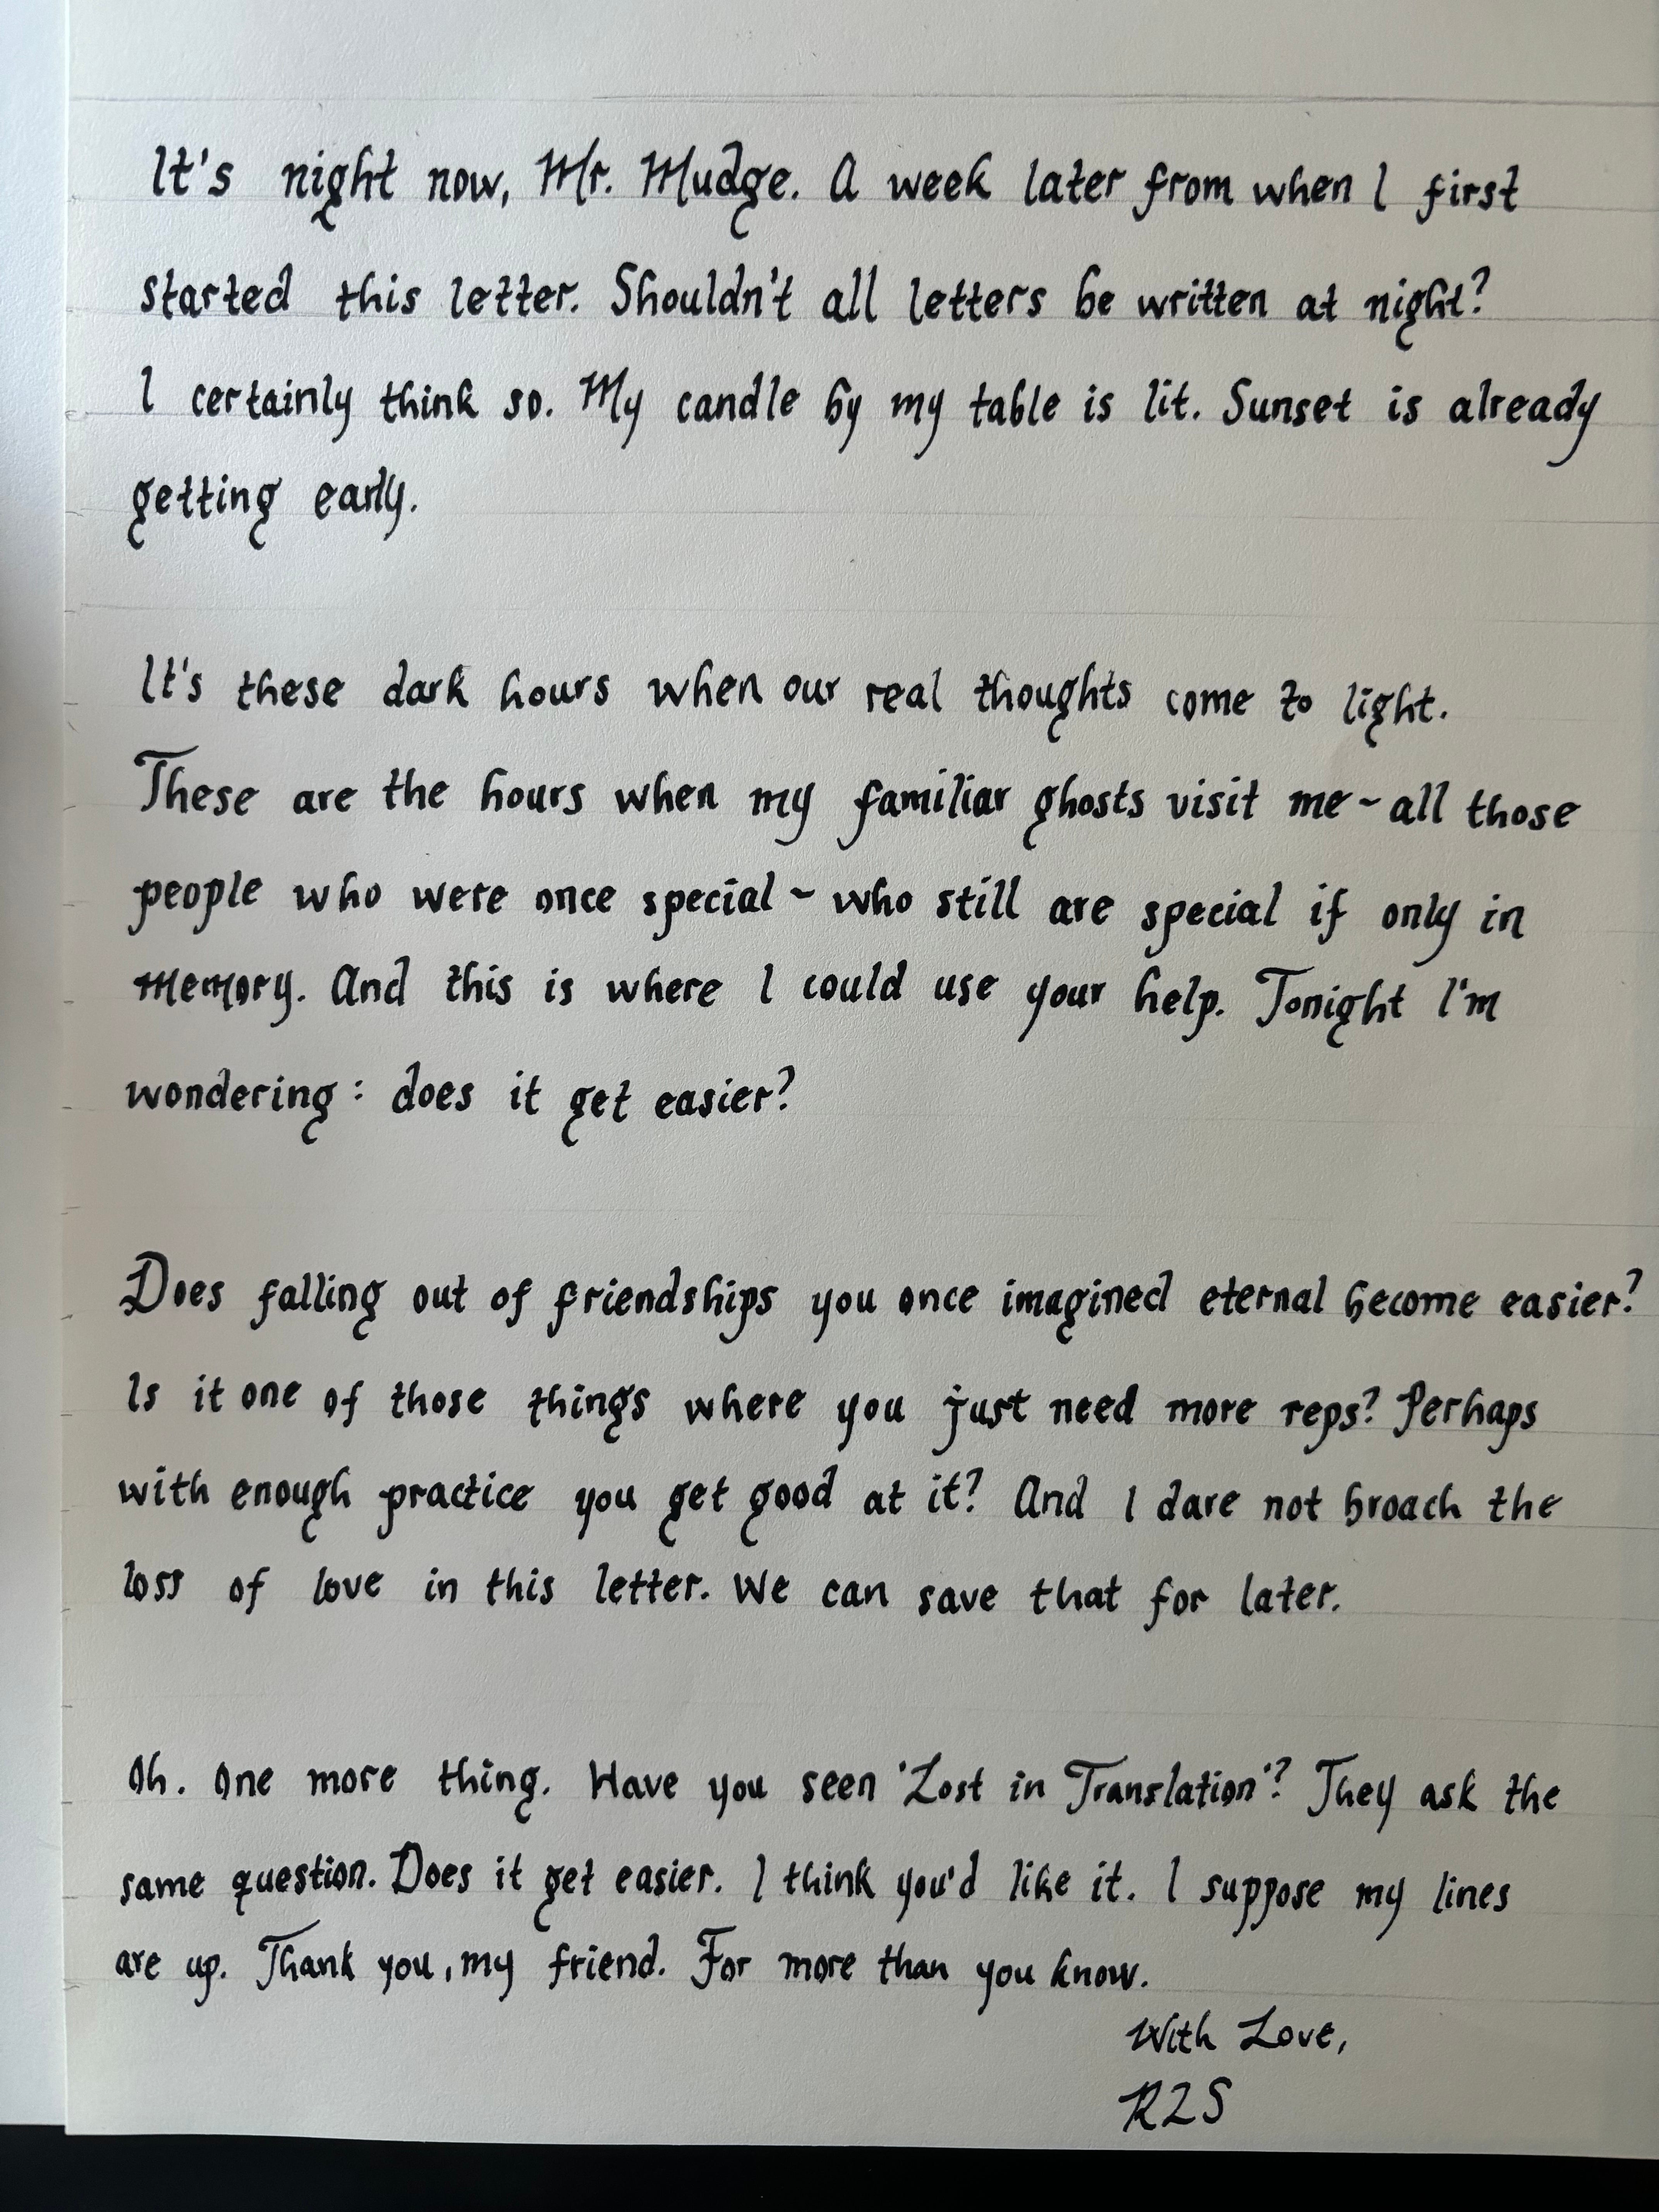 It's night now, Mr. Mudge. A week later from when I first
started this letter. Shouldn't all letters be written at night?
I certainly think so. My candle by my table is lit. Sunset is already
getting early.
It's these dark hours when our real thoughts come to light.
These are the hours when my familiar ghosts visit me ~ all those
people who were once special ~ who still are special if only in
memory. And this is where I could use your help. Tonight I'm
wondering: does it get easier?
Does falling out of friendships you once imagined eternal become easier?
Is it one of those things where you just need more reps? Perhaps
with enough practice you get good at it? And I dare not broach the
loss of love in this letter. We can save that for later.
Oh. One more thing. Have you seen 'Lost in Translation'? They ask the
same question. Does it get easier. I think you'd like it. I suppose my lines
are up. Thank you, my friend. For more than you know.
With Love,
RLS